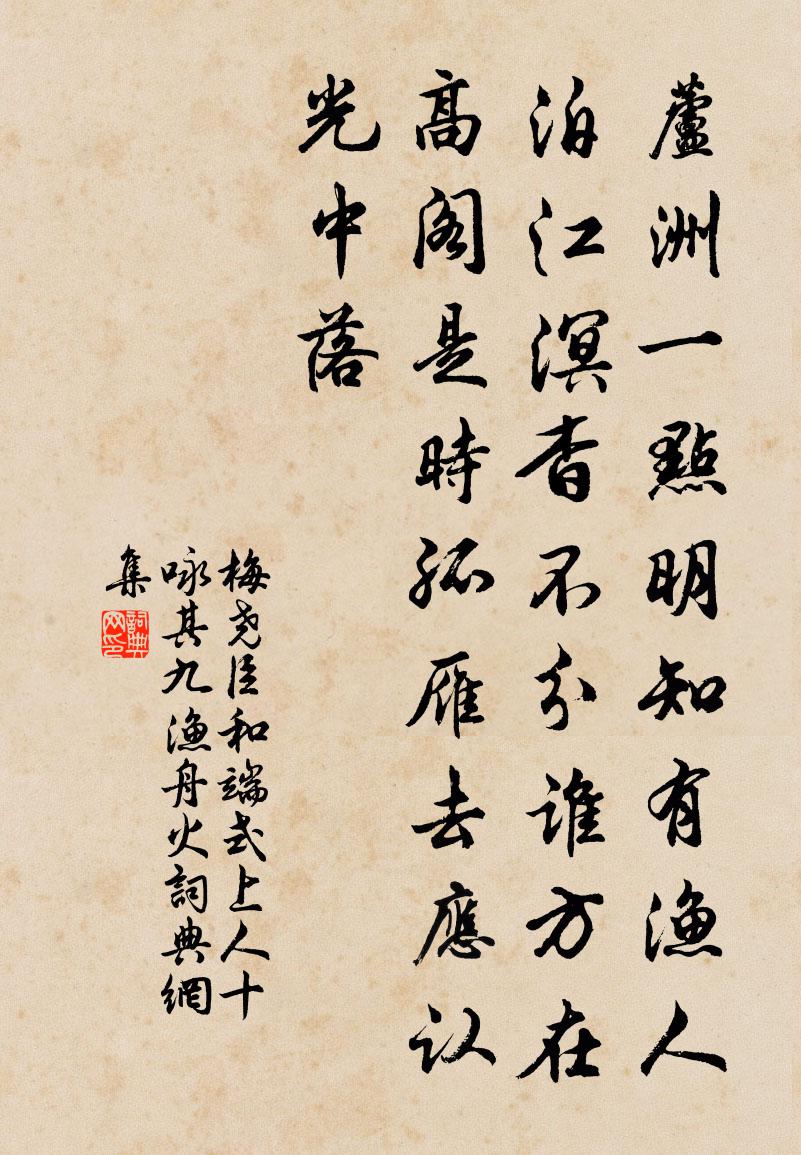 蘆洲一點明知有漁人
泊江溟杳不分誰方在
高閣是時孤雁去應認
光中落
梅堯臣和端式上人十
咏其九漁舟火詞典網
集
詞典
网印